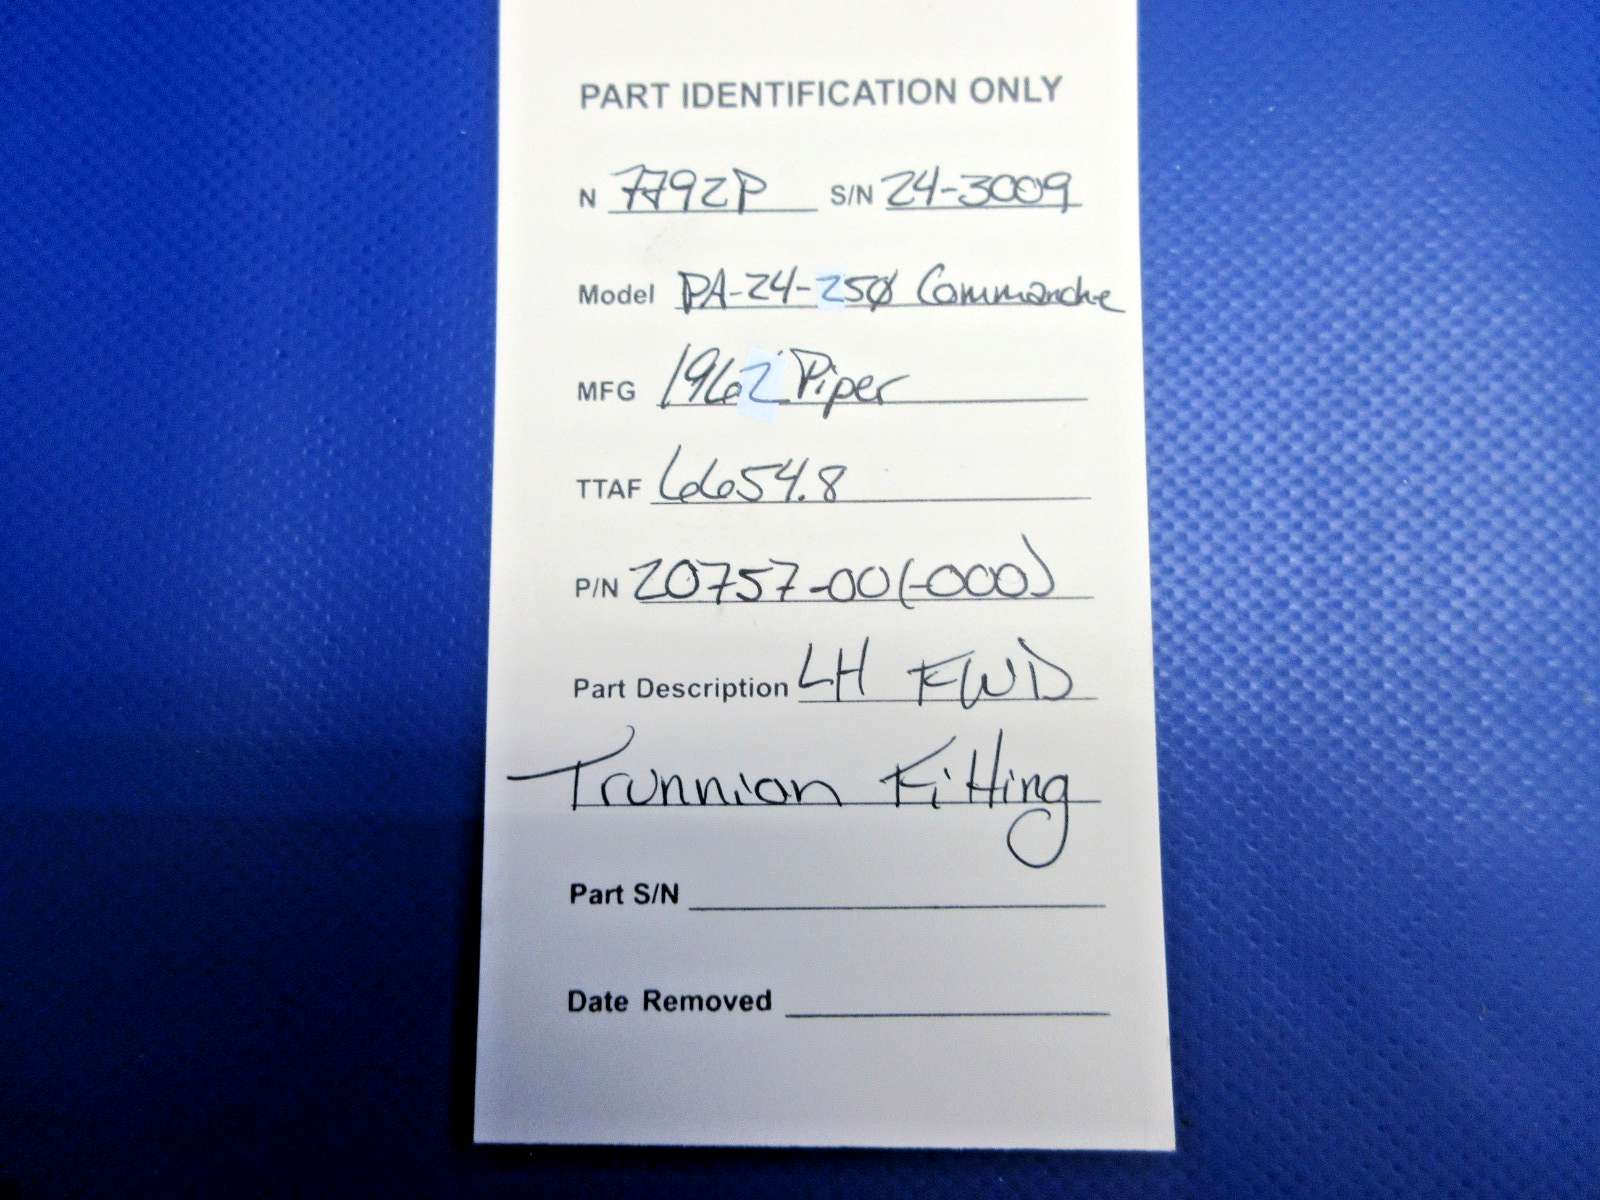 PART IDENTIFICATION ONLY
N 7792P S/N 24-3009
Model PA-24-250 Commanche
MFG 1962 Piper
TTAF 6654.8
P/N 20757-00(-000)
Part Description LH FWD
Trunnion Fitting
Part S/N
Date Removed